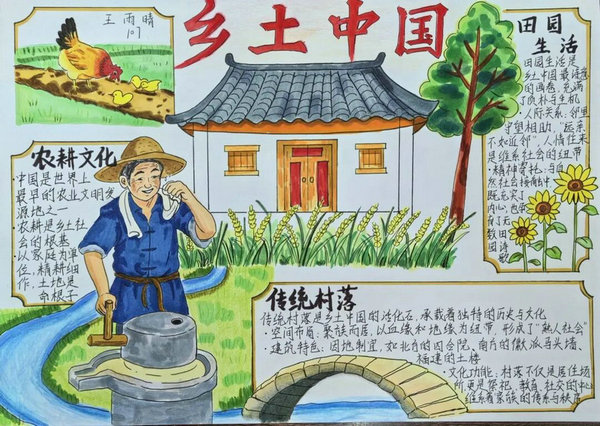 王雨晴
107
乡土中国
田园
生活
田园生活是
乡土中国最诗意
的画卷,充满
了质朴与生机
·人际关系:邻里
守望相助,“远亲
不如近邻”,人情往来
是维系社会的纽带
·精神寄托:与自
然社会接触中
既充实了
内心,也孕
育了无
数田
园诗
歌
农耕文化
·中国是世界上
最早的农业文明发
源地之一
·农耕是乡土社
会的根基
·以家庭为单
位,精耕细
作,土地是
命根子
传统村落
传统村落是乡土中国的活化石,承载着独特的历史与文化
·空间布局:聚族而居,以血缘和地缘为纽带,形成了“熟人社会”
·建筑特色:因地制宜,如北方的四合院,南方的徽派马头墙、
福建的土楼
·文化功能:村落不仅是居住场
所更是祭祀、教育、社交的中心
维系着家族的传承与秩序